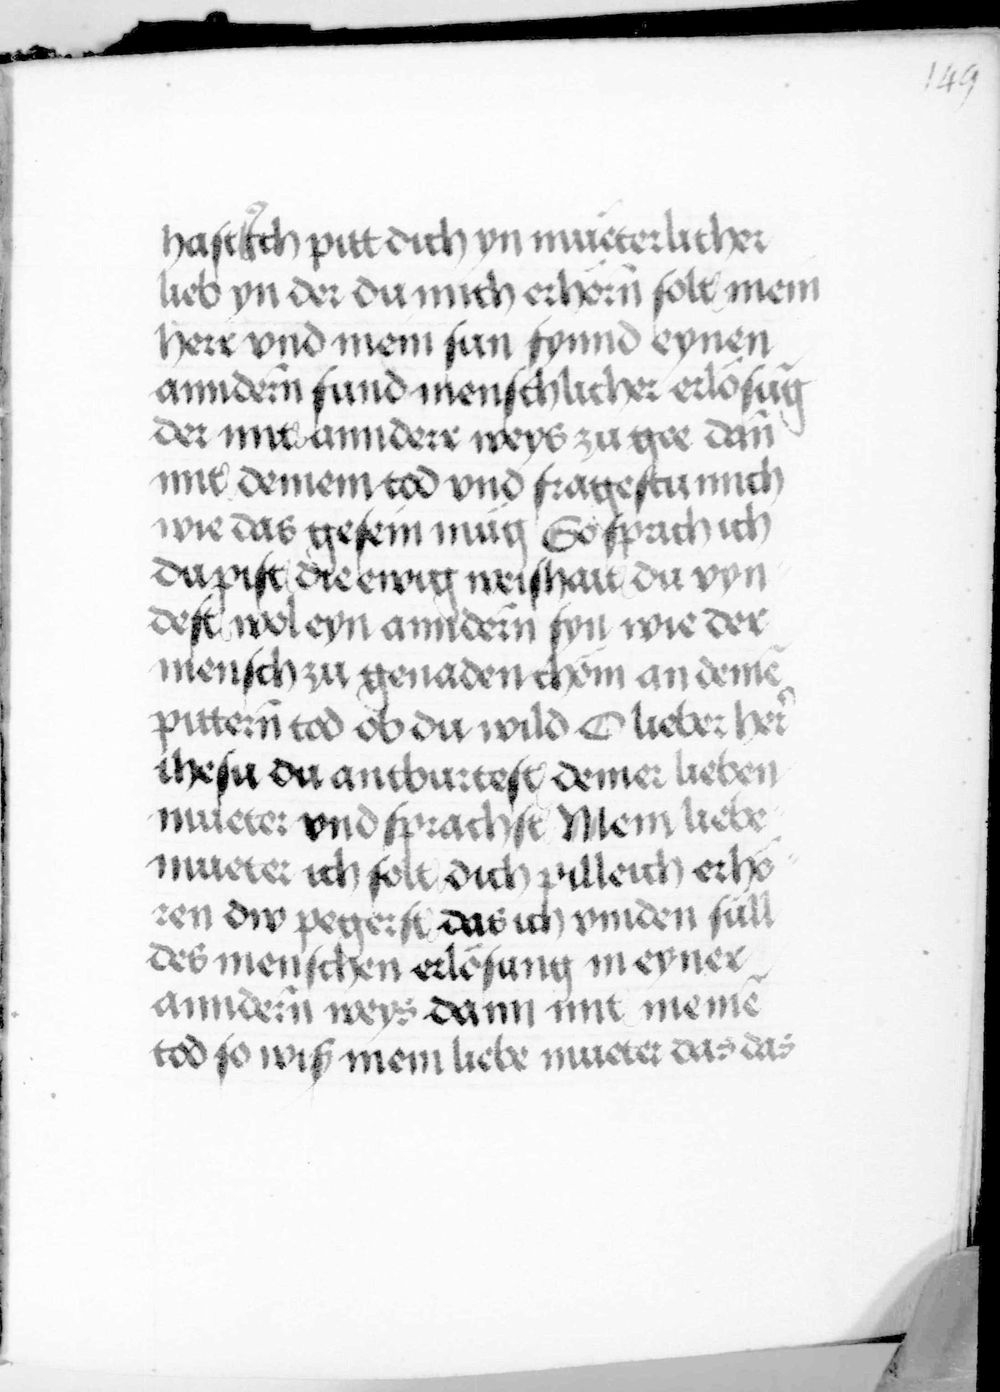 149
hast ich pitt dich yn mueterlicher
lieb yn der du mich erhorn̄ solt mein
herr vnd mein sun fynnd eynen
anndern̄ fund menschlicher erlösūg
der mit annderr weys zu gee dan̄
mit deinem tod vnd fragestu mich
wie das gesein mug So sprach ich
du pist die ewig weishait du vyn
dest wol eyn anndern̄ syn wie der
mensch zu genaden chöm an deinē
pittern̄ tod ob du wild O lieber her̄
ihesu du antburtest deiner lieben
mueter vnd sprachst Mein liebe
mueter ich solt dich pilleich erhö
ren dw pegerst das ich vinden sull
des menschen erlösung in eyner
anndern̄ weys dann mit meinē
tod so wiß mein liebe mueter das das